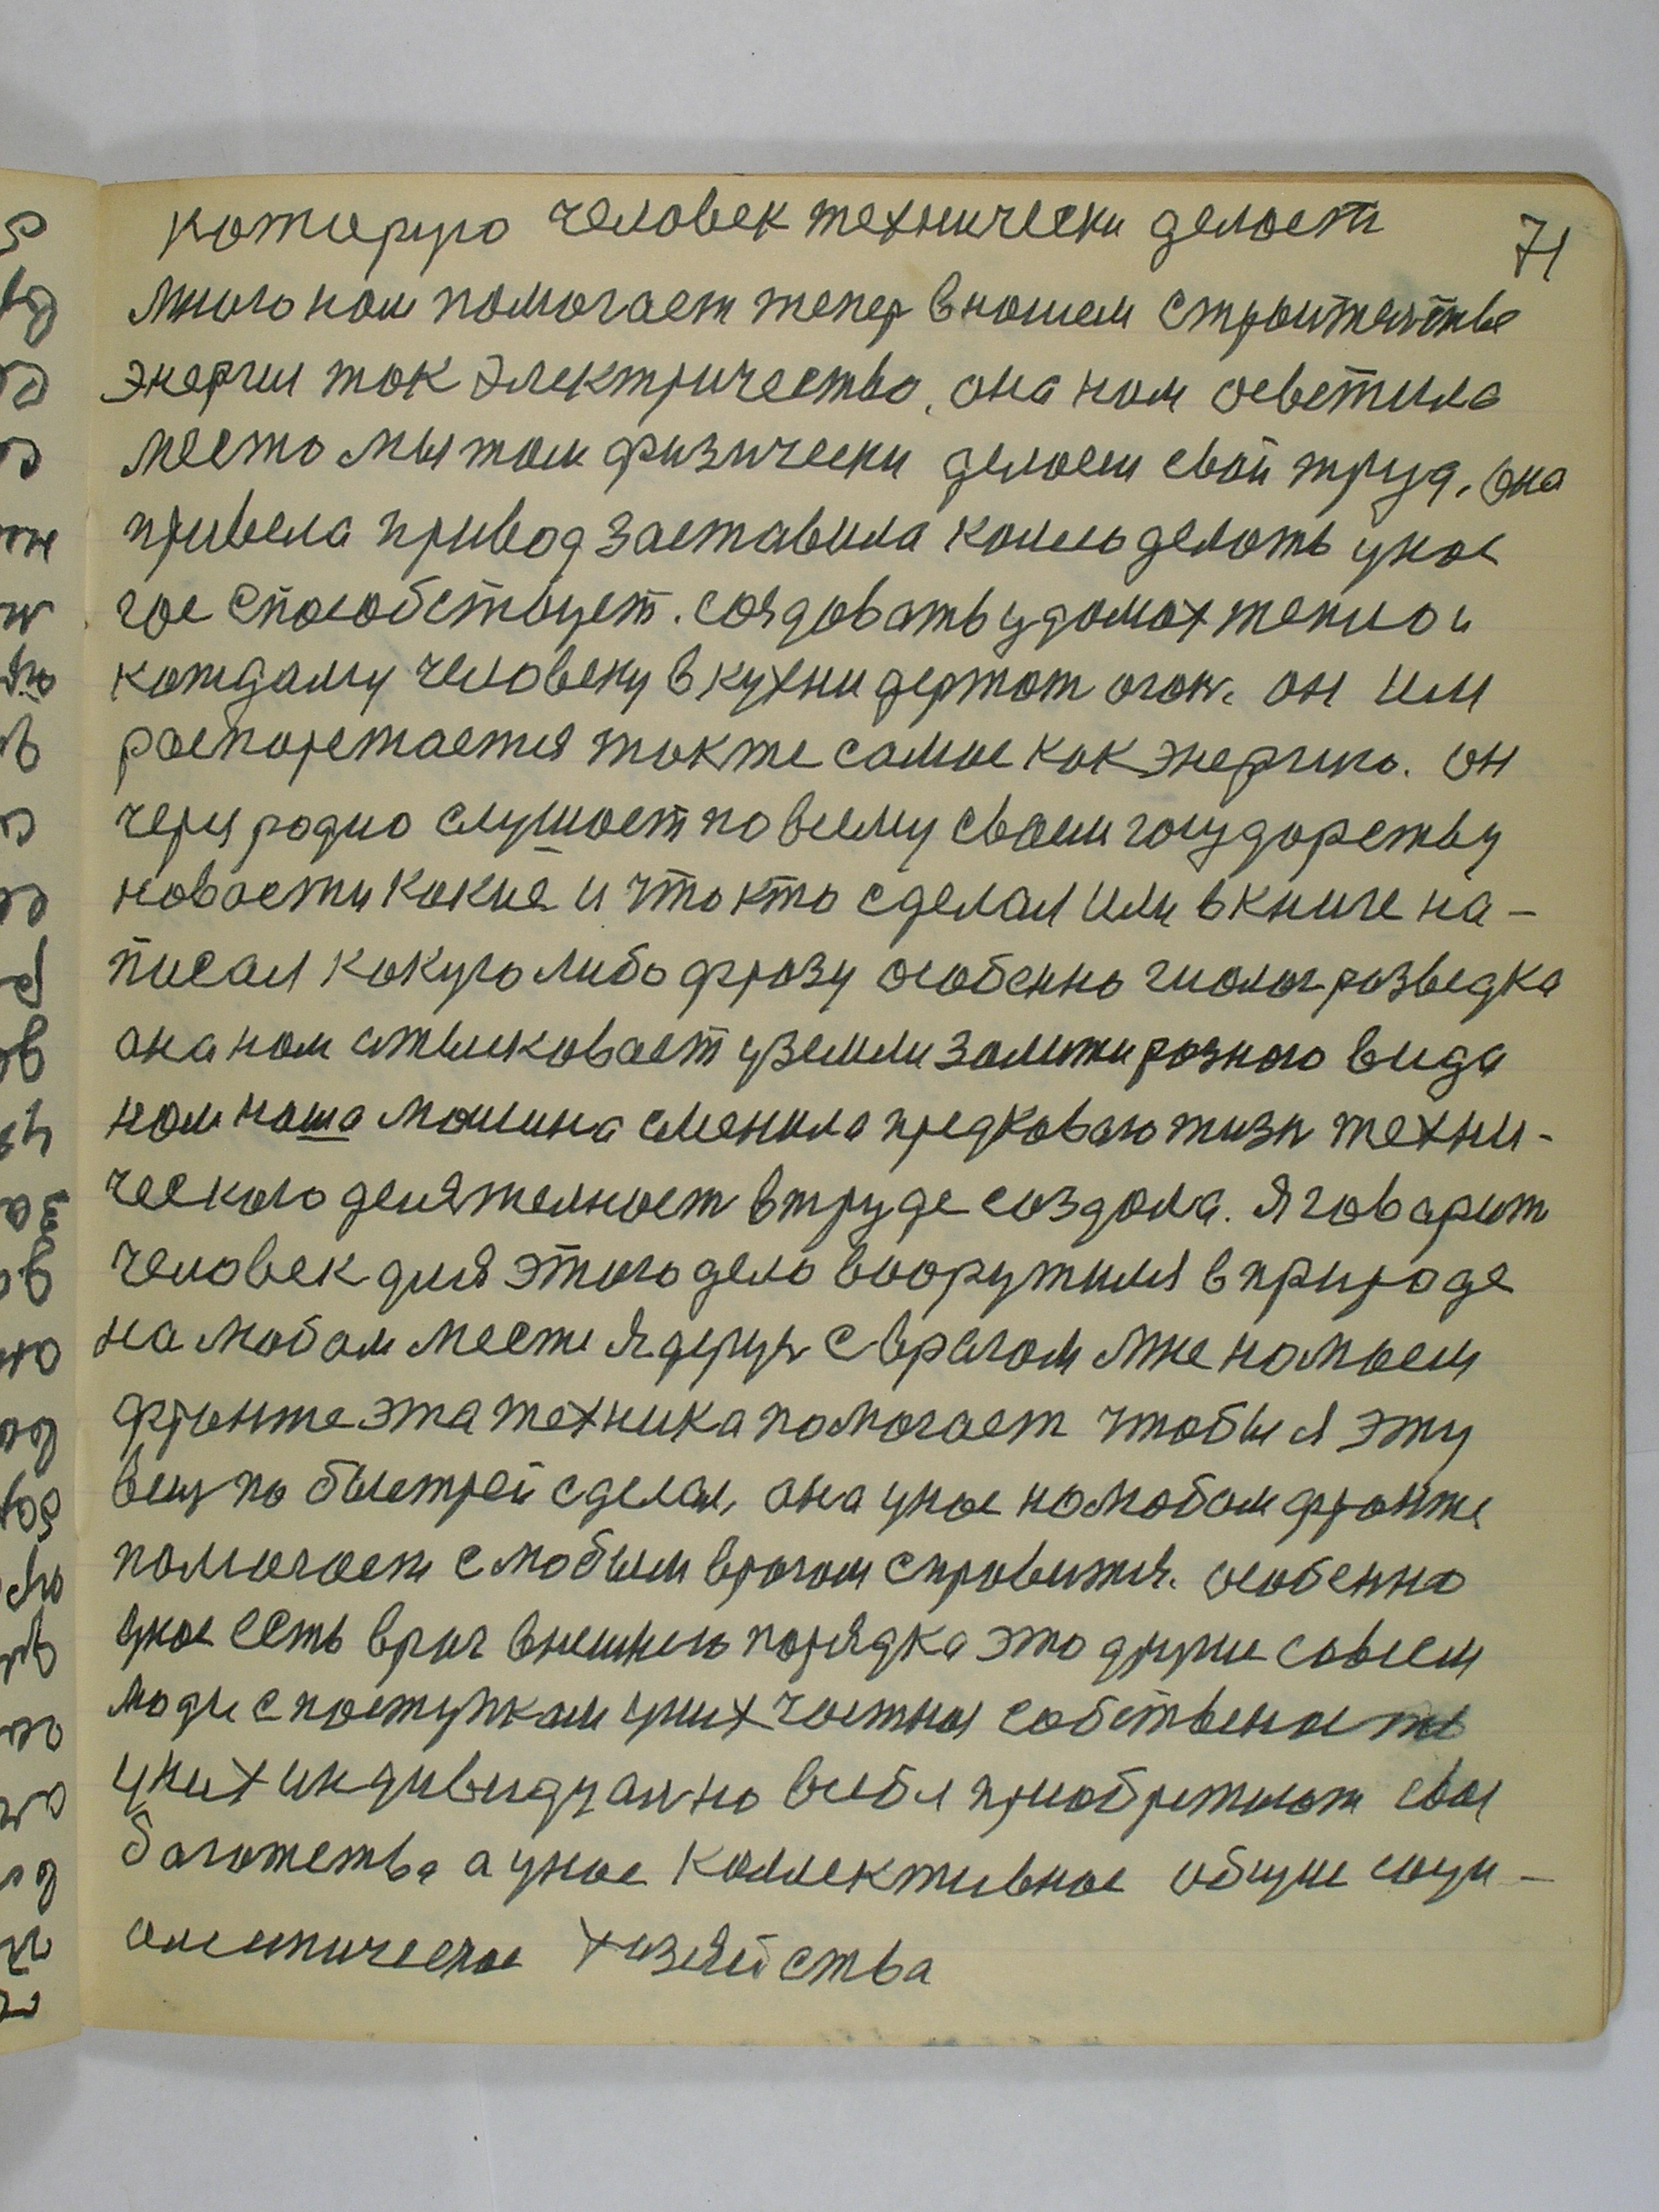 которую человек технически делает
71
много нам помогает тепер в нашем строительстве
энергия ток электричество, она нам осветила
место мы там физически делаем свой труд, она
привела привод заставила делать у нас
газ способствует. создовать у домах тепло и
кождаму человеку в кухни держат огон. он им
распоряжается также самое как энергию. он
через радио слушает по всему своем государству
новасти какие и что кто сделал или в книге на-
писал какую либо фразу особенно геолог разведка
она нам отыскивает у земли залежи разного вида
нам наша машина сменила предковаю жизн техни-
ческаю деятелност в труде создала. Я говарит
человек для этого дело вооружился в природе
на любом месте я дерус с врагом мне на моем
фронте эта техника помогает чтобы я эту
вещ по быстрей сделал, она у нас на любом фронте
помогает с любым врагом справится. особенно
у нас есть враг внешнего порядка это други совсем
люди с поступкам у них частная собственность
у них индивидуално в себя приобретают свои
богатства а у нас коллективное общие соци-
алистическое хозяйства